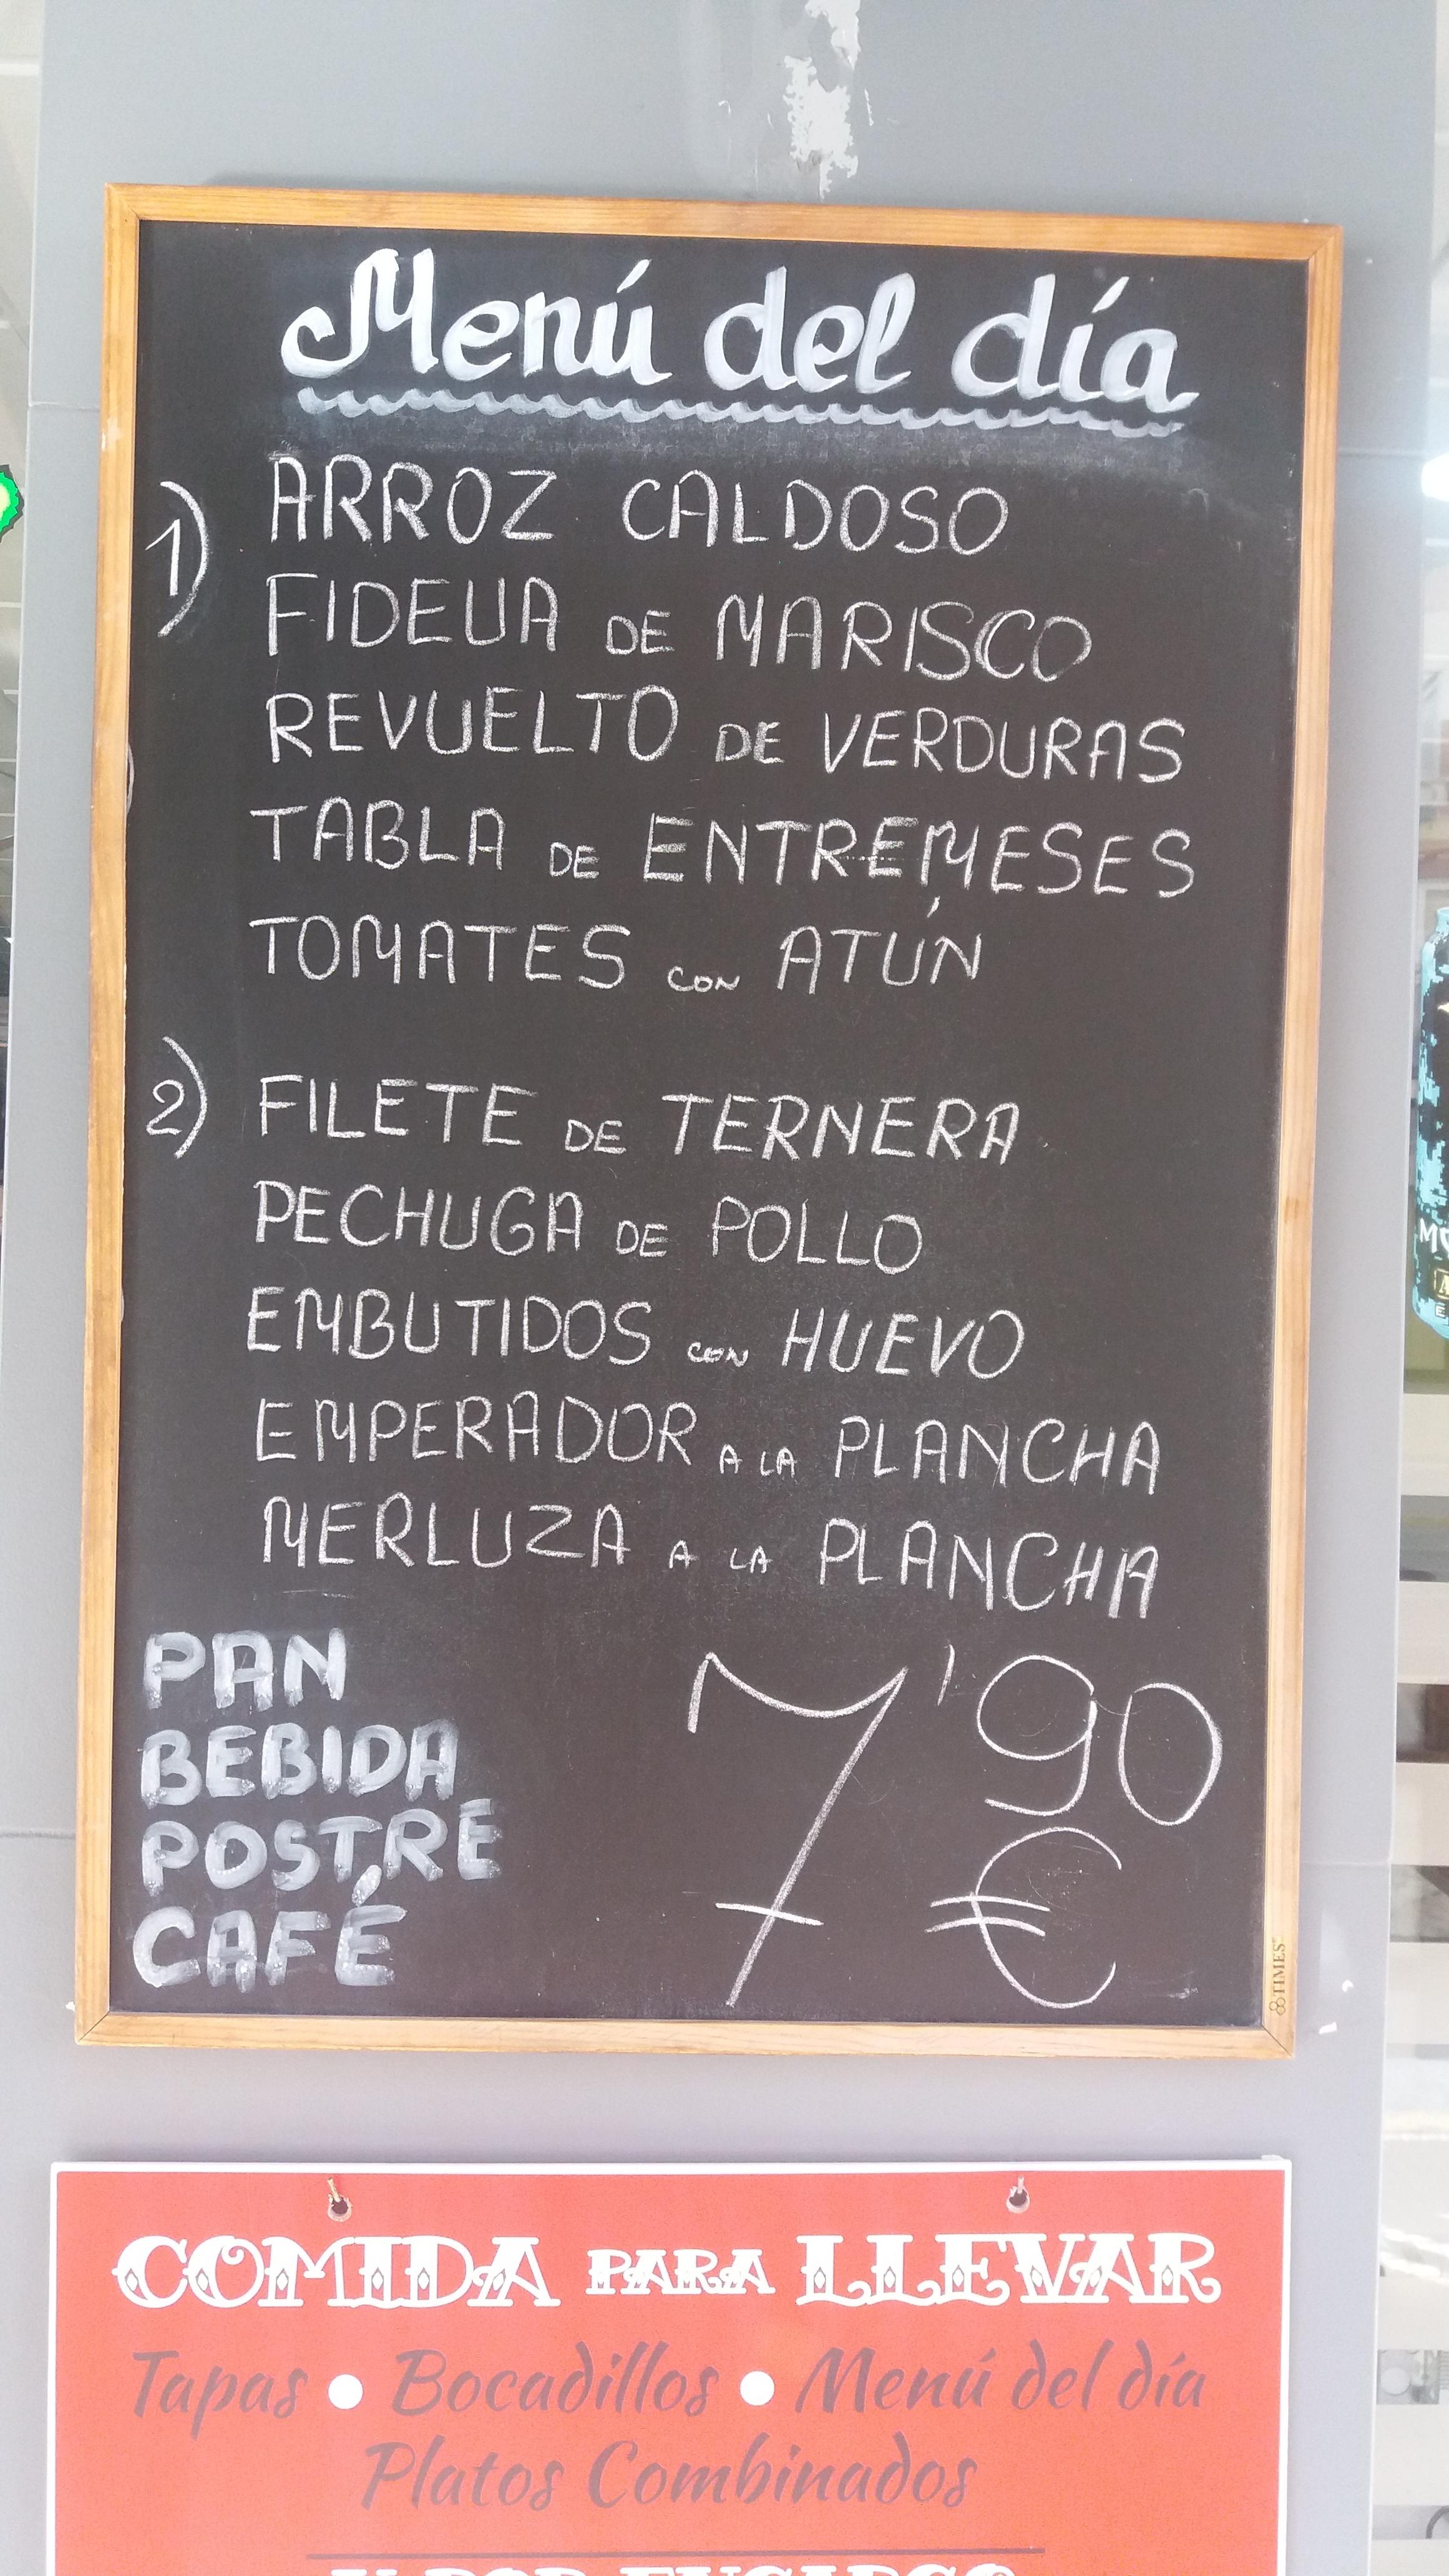 Menú del día
1) ARROZ CALDOSO
FIDEUA DE MARISCO
REVUELTO DE VERDURAS
TABLA DE ENTREMESES
TOMATES CON ATÚN
2) FILETE DE TERNERA
PECHUGA DE POLLO
EMBUTIDOS CON HUEVO
EMPERADOR A LA PLANCHA
MERLUZA A LA PLANCHA
PAN
BEBIDA
POSTRE
CAFÉ
7'90
€
TIMES
COMIDA PARA LLEVAR
Tapas • Bocadillos • Menú del día
Platos Combinados
Y POR ENCARGO